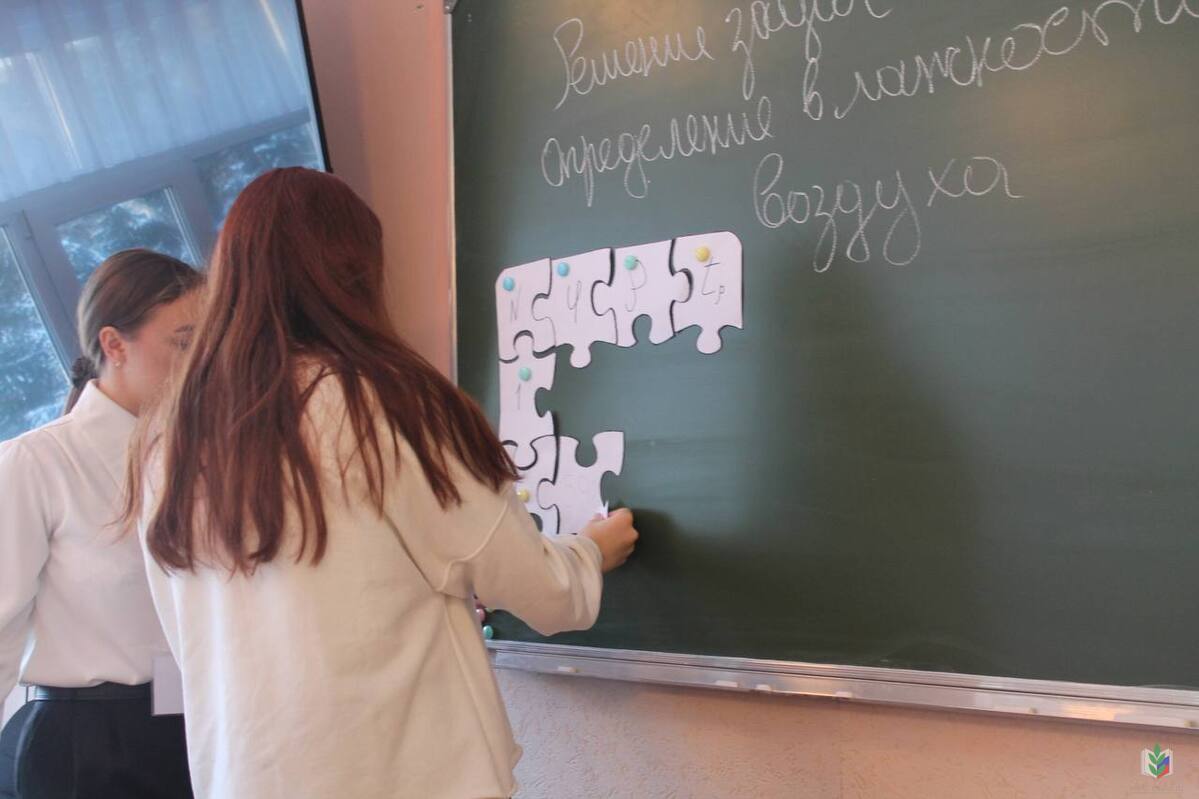 Решение задач
определение влажности
воздуха
N φ ρ tₚ
1